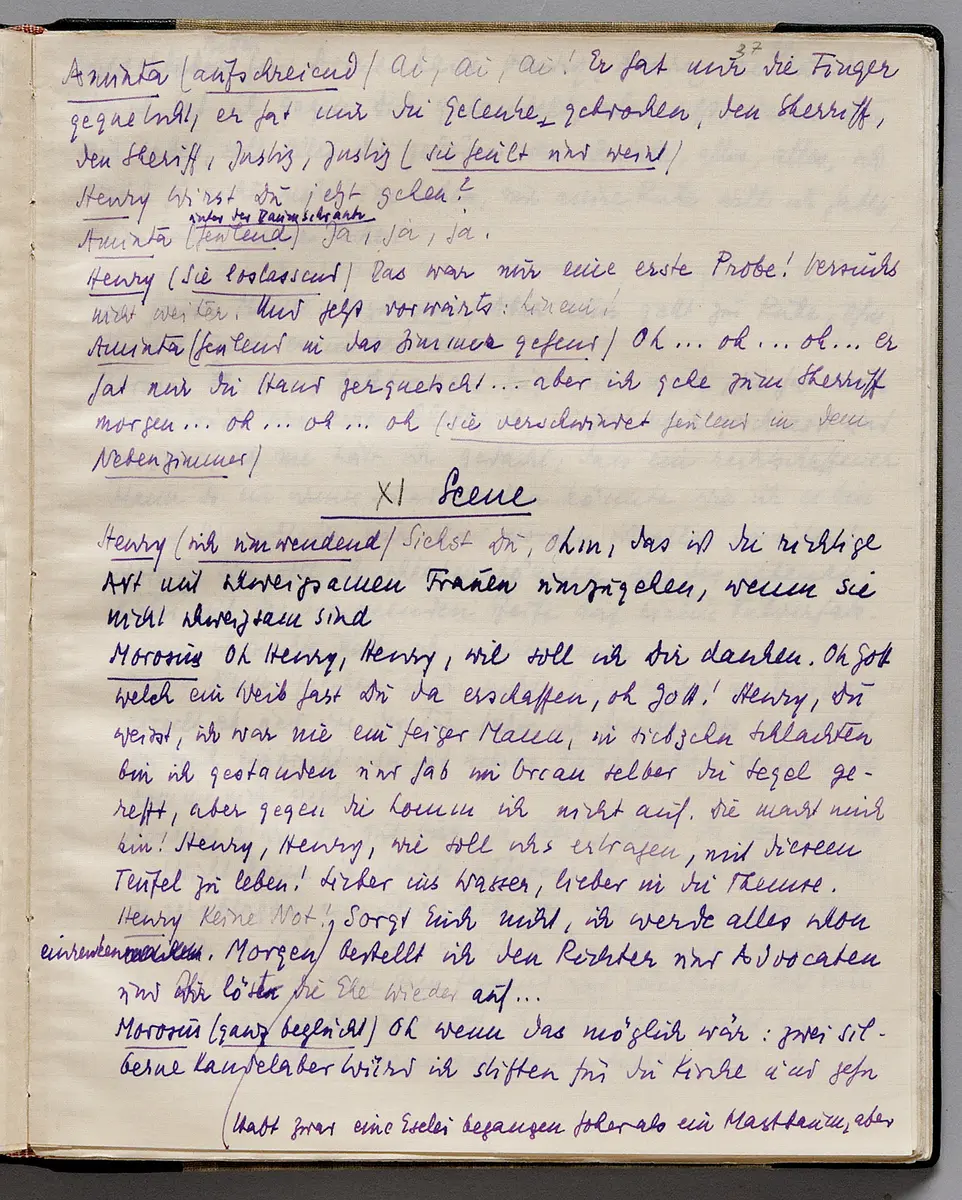 37
Aminta (aufschreiend) ai, ai, ai! Er hat mir die Finger
gequetscht, er hat mir die Gelenke gebrochen, den Sherriff,
den Sheriff, Justiz, Justiz (sie heult und weint)
Henry Wirst Du jetzt gehen?
unter der Daumschraube
Aminta (heulend) Ja, ja, ja.
Henry (sie loslassend) Das war nur eine erste Probe! Versuchs
nicht weiter. Und jetzt vorwärts: hinein!
Aminta (heulend in das Zimmer gehend) Oh ... oh ... oh ... er
hat mir die Hand zerquetscht ... aber ich gehe zum Sherriff
morgen ... oh ... oh ... oh (sie verschwindet heulend in dem
Nebenzimmer)
XI Scene
Henry (sich umwendend) Siehst Du, Ohm, das ist die richtige
Art mit schweigsamen Frauen umzugehen, wenn sie
nicht schweigsam sind
Morosus Oh Henry, Henry, wie soll ich Dir danken. Oh Gott
welch ein Weib hast Du da erschaffen, oh Gott! Henry, Du
weisst, ich war nie ein feiger Mann, in siebzehn Schlachten
bin ich gestanden und hab im Orcan selber die Segel ge-
refft, aber gegen die komm ich nicht auf. Die macht mich
hin! Henry, Henry, wie soll ichs ertragen, mit diesem
Teufel zu leben! Lieber ins Wasser, lieber in die Themse.
Henry Keine Not! Sorgt Euch nicht, ich werde alles schon
einrenken. Morgen bestellt ich den Richter und Advocaten
und wir lösen die Ehe wieder auf ...
Morosus (ganz beglückt) Oh wenn das möglich wär: zwei sil-
berne Kandelaber würd ich stiften für die Kirche und zehn
(Habt zwar eine Eselei begangen höher als ein Mastbaum, aber